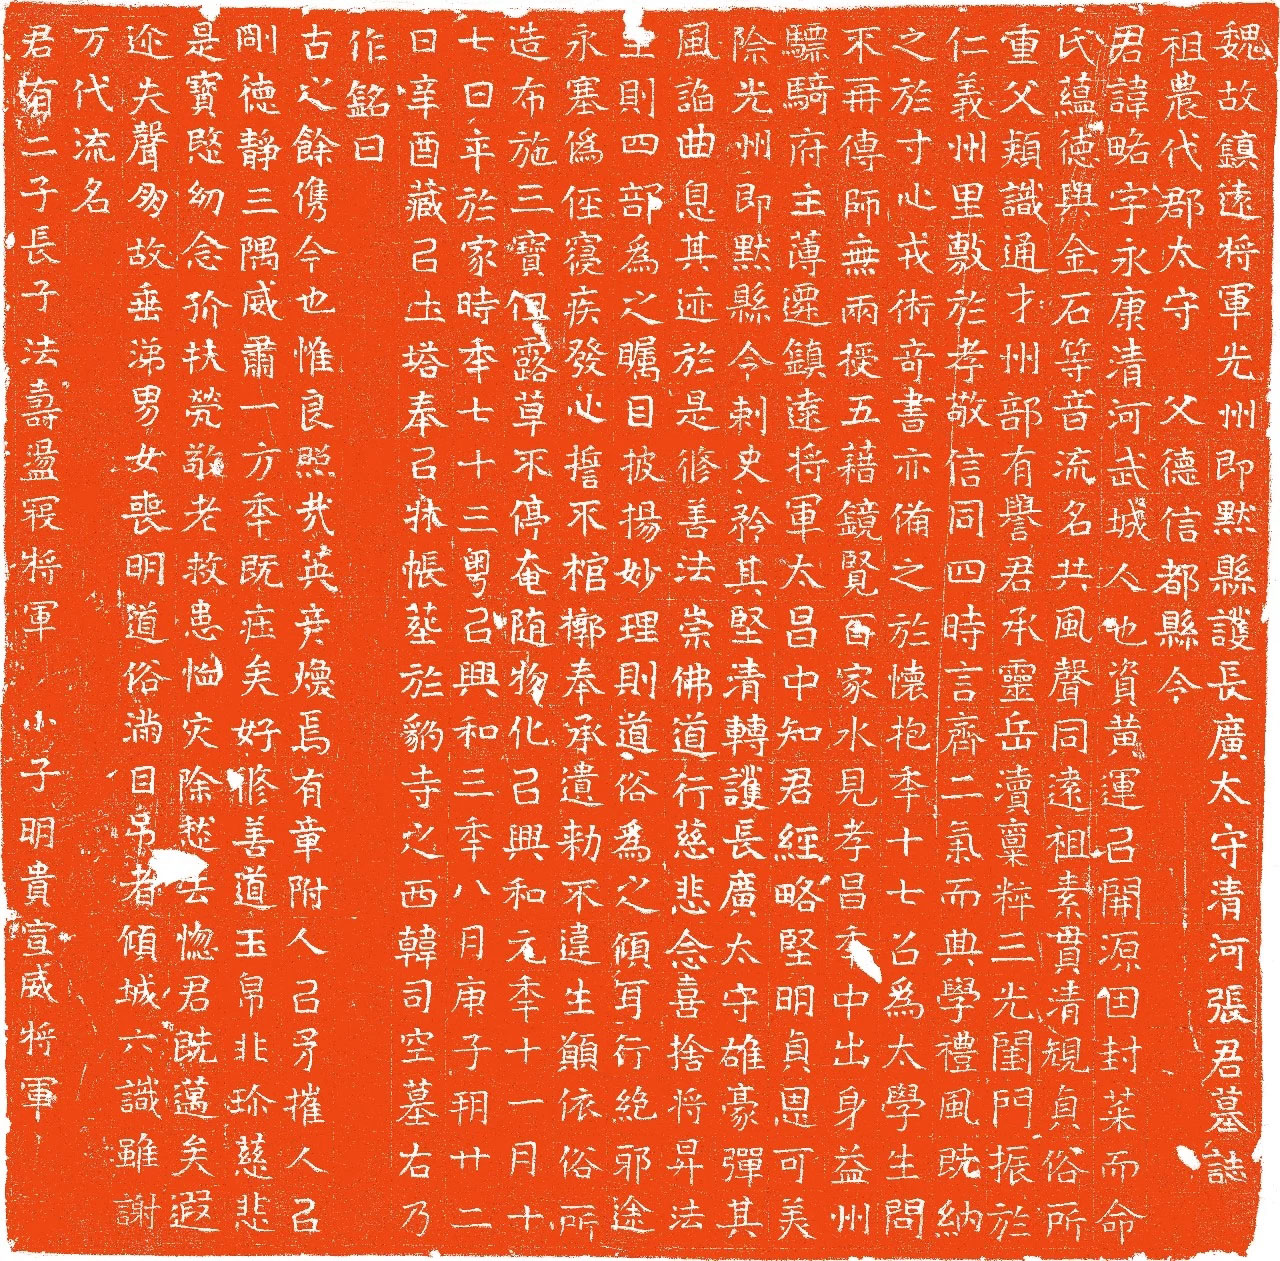 魏故鎮遠将軍光州即默縣護長廣太守清河張君墓誌
祖農代郡太守　父德信都縣令
君諱略字永康清河武城人也資黄運㠯開源因封菜而命
氏蘊德與金石等音流名共風聲同遠祖素貫清規貞俗所
重父類識通才州部有譽君承靈岳瀆稟粹三光閨門振於
仁義州里敷於孝敬信同四時言齊二氣而典學禮風既納
之於寸心戎術竒書亦備之於懷抱秊十七召為太學生問
不再傳師無兩授五藉鏡覽百家水見孝昌秊中出身益州
驃騎府主薄遷鎮遠将軍太昌中知君經略堅明貞思可美
除光州即默縣令刺史矜其堅清轉護長廣太守雄豪彈其
風謟曲息其迹於是脩善法崇佛道行慈悲念喜捨将昇法
則四部為之矚目披揚妙理則道俗為之傾耳行絶邪途
永塞偽俓寑疾發心誓不棺槨奉承遺勑不違生願依俗所
造布施三寶但露草不停奄随物化㠯興和元秊十一月十
七日卒於家時秊七十三粤㠯興和三秊八月庚子玥廿二
日辛酉藏㠯士塔奉㠯牀帳塟於豹寺之西韓司空墓右乃
作銘曰
古之餘儁今也惟良照㢤英彦煥焉有章附人㠯矛摧人㠯
剛德静三隅威肅一方秊既㽵矣好脩善道玉帛非珎慈悲
是寶愍幼念扵扶㷀敬老救患恤灾除愁去惚君既邁矣遐
迩失聲夠故垂涕男女喪明道俗滿目吊者傾城六識雖謝
万代流名
君有二子長子法壽盪冦将軍　小子明貴宣威将軍